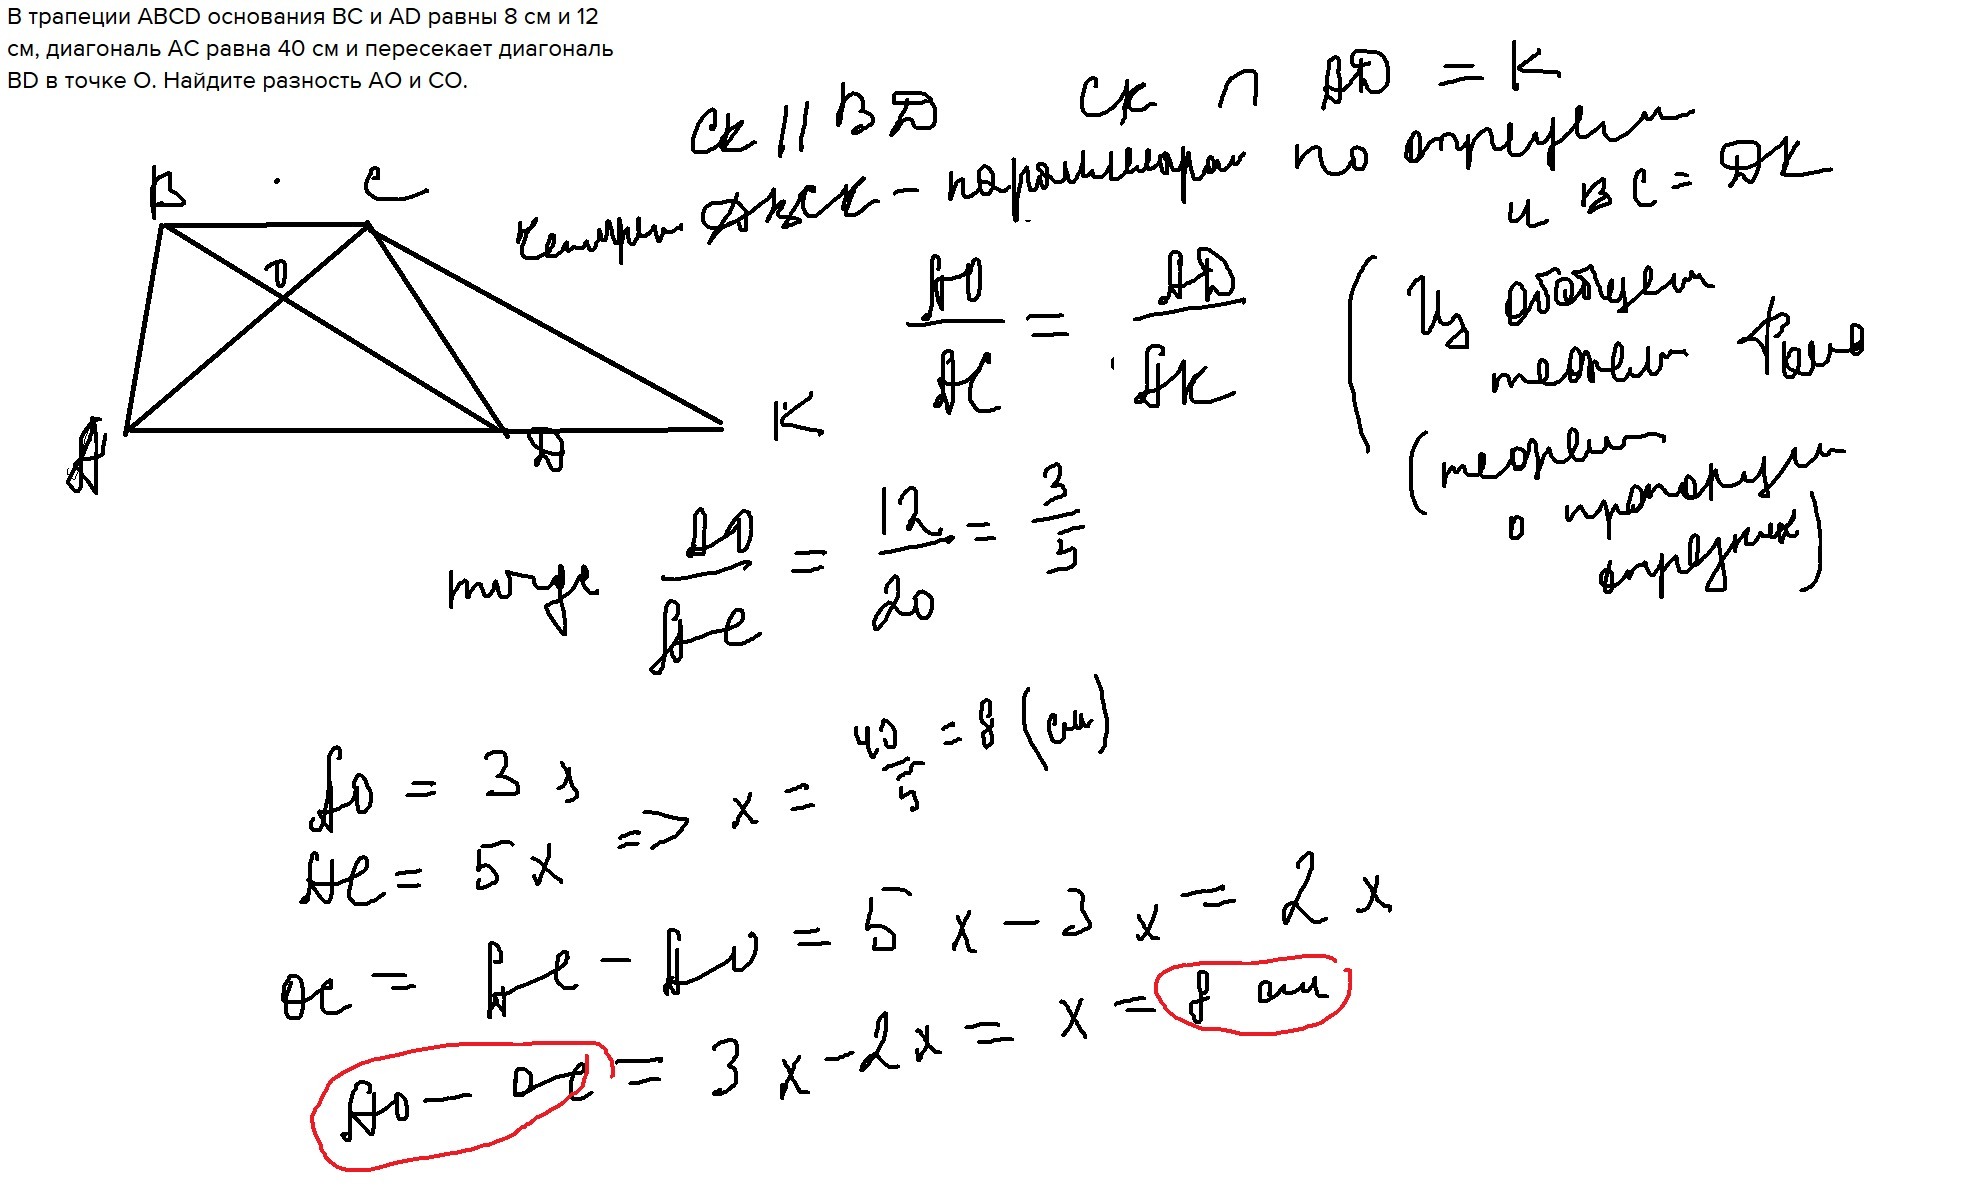 В трапеции ABCD основания BC и AD равны 8 см и 12
см, диагональ AC равна 40 см и пересекает диагональ
BD в точке O. Найдите разность AO и CO.
CK || BD CK ∩ AD = K
DBCK - по
и BC = DK
B C
O
A D K
AO/AC = AD/AK
(Из
теорем
(теорем
о
отрезках)
тогда AO/AC = 12/20 = 3/5
AO = 3x
AC = 5x => x = 40/5 = 8 (см)
OC = AC - AO = 5x - 3x = 2x
AO - OC = 3x - 2x = x = 8 см